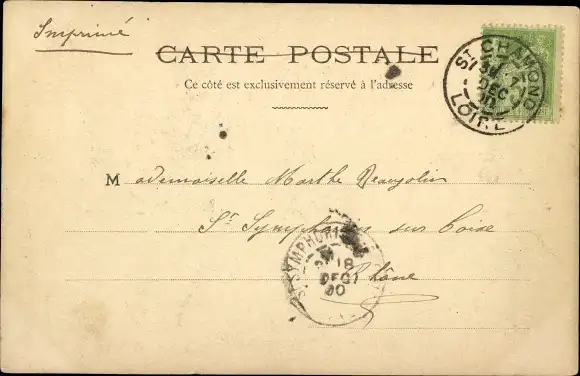 Imprimé
CARTE POSTALE
Ce côté est exclusivement réservé à l'adresse
ST CHAMOND
DEC
LOIRE
Mademoiselle Marthe
St Symphorien sur Coise
Rhône
ST SYMPHORI
18
DEC
00